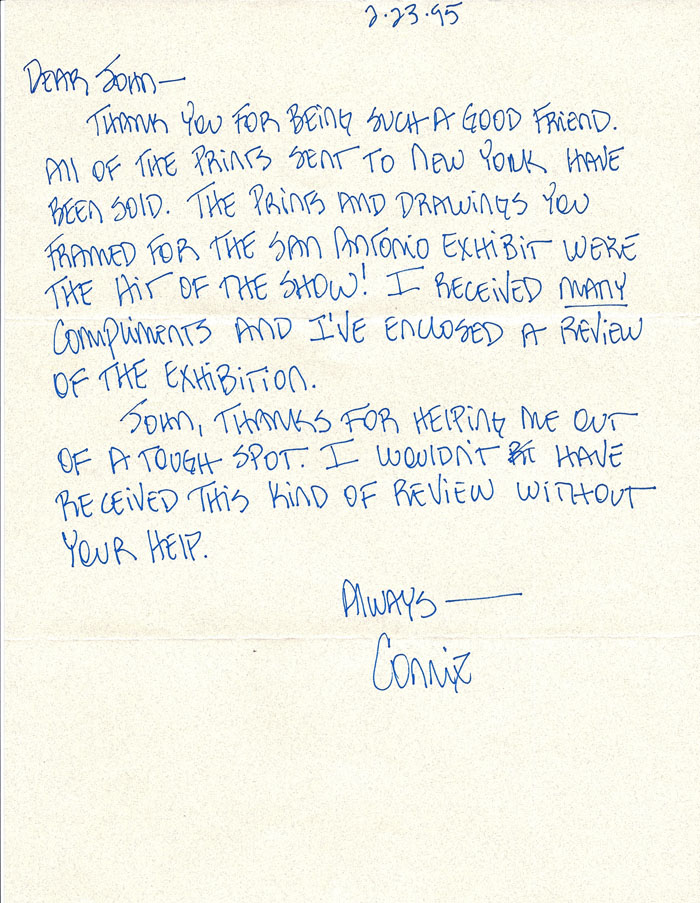 2.23.95
DEAR JOHN—
THANK YOU FOR BEING SUCH A GOOD FRIEND.
All OF THE PRINTS SENT TO NEW YORK HAVE
BEEN SOlD. THE PRINTS AND DRAWINGS YOU
FRAMED FOR THE SAN ANTONIO EXHIBIT WERE
THE HIT OF THE SHOW! I RECEIVED MANY
COMPlIMENTS AND I'VE ENCLOSED A REVIEW
OF THE EXHIBITION.
JOHN, THANKS FOR HELPING ME OUT
OF A TOUGH SPOT. I WOULDN'T HAVE
RECEIVED THIS KIND OF REVIEW WITHOUT
YOUR HElP.
AlWAYS—
Connie